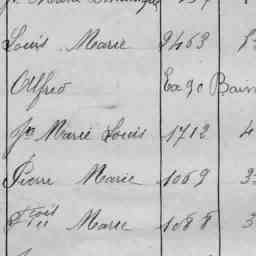 Louis Marie 9463
Alfred Bain
Jn Marie Louis 1712 4
Pierre Marie 1069 3
Fois Marie 1088 3